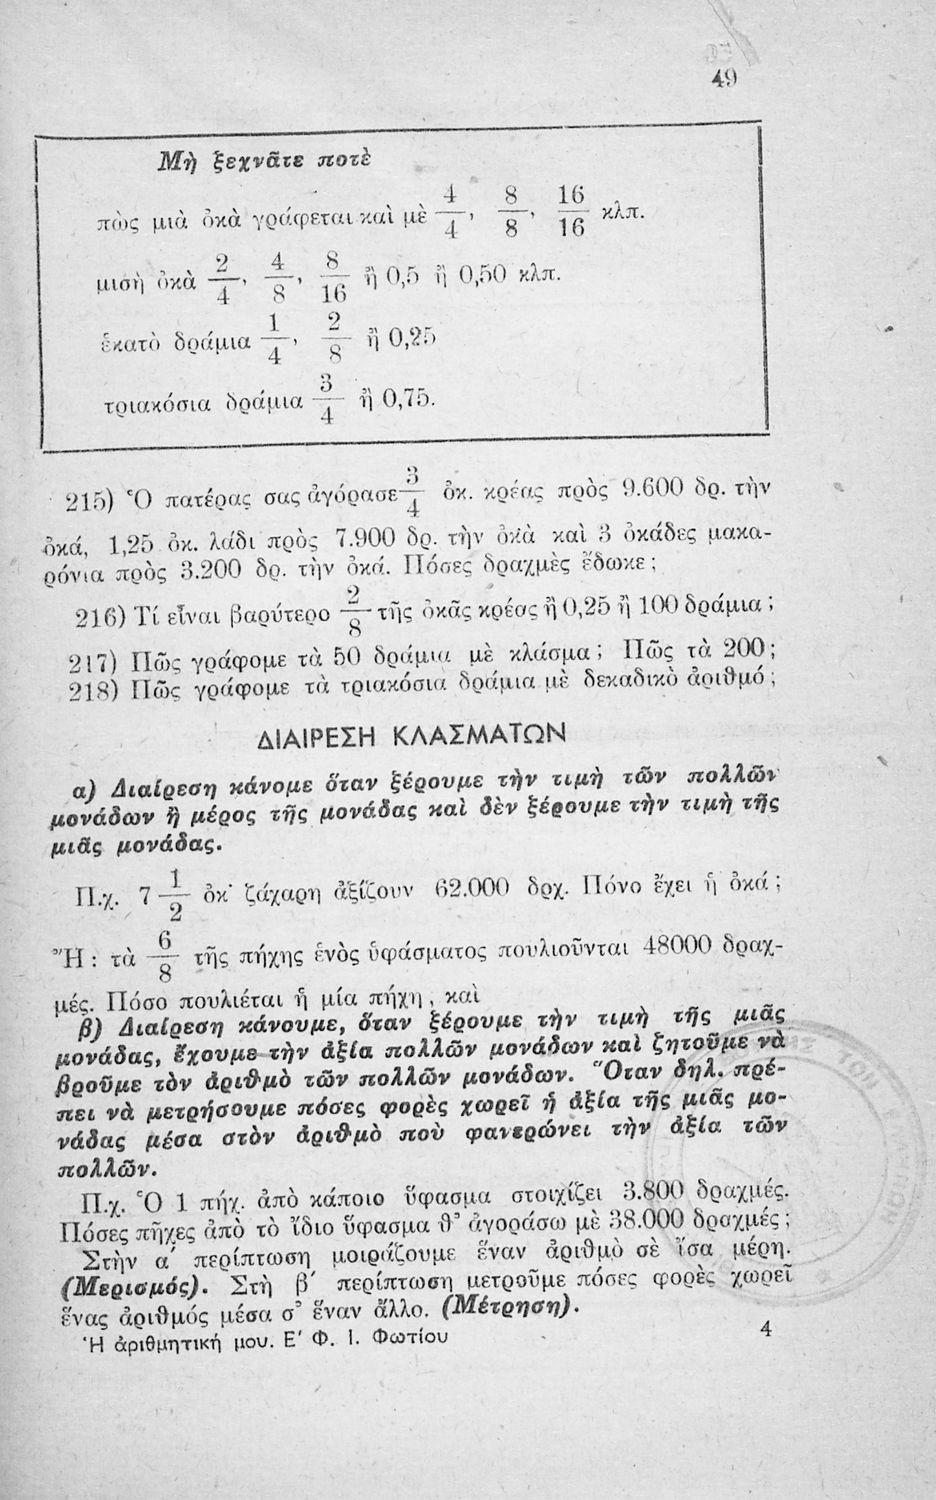 49
Μὴ ξεχνᾶτε ποτὲ
πὼς μιὰ ὀκὰ γράφεται καὶ μὲ 4/4, 8/8, 16/16 κλπ.
μισὴ ὀκὰ 2/4, 4/8, 8/16 ἢ 0,5 ἢ 0,50 κλπ.
ἑκατὸ δράμια 1/4, 2/8 ἢ 0,25
τριακόσια δράμια 3/4 ἢ 0,75.
215) Ὁ πατέρας σας ἀγόρασε 3/4 ὀκ. κρέας πρὸς 9.600 δρ. τὴν
ὀκά, 1,25 ὀκ. λάδι πρὸς 7.900 δρ. τὴν ὀκὰ καὶ 3 ὀκάδες μακα-
ρόνια πρὸς 3.200 δρ. τὴν ὀκά. Πόσες δραχμὲς ἔδωκε;
216) Τί εἶναι βαρύτερο 2/8 τῆς ὀκᾶς κρέας ἢ 0,25 ἢ 100 δράμια;
217) Πῶς γράφομε τὰ 50 δράμια μὲ κλάσμα; Πῶς τὰ 200;
218) Πῶς γράφομε τὰ τριακόσια δράμια μὲ δεκαδικὸ ἀριθμό;
ΔΙΑΙΡΕΣΗ ΚΛΑΣΜΑΤΩΝ
α) Διαίρεση κάνομε ὅταν ξέρουμε τὴν τιμὴ τῶν πολλῶν
μονάδων ἢ μέρος τῆς μονάδας καὶ δὲν ξέρουμε τὴν τιμὴ τῆς
μιᾶς μονάδας.
Π.χ. 7 1/2 ὀκ· ζάχαρη ἀξίζουν 62.000 δρχ. Πόνο ἔχει ἡ ὀκά;
Ἢ: τὰ 6/8 τῆς πήχης ἑνὸς ὑφάσματος πουλιοῦνται 48000 δραχ-
μές. Πόσο πουλιέται ἡ μία πήχη, καὶ
β) Διαίρεση κάνουμε, ὅταν ξέρουμε τὴν τιμὴ τῆς μιᾶς
μονάδας, ἔχουμε τὴν ἀξία πολλῶν μονάδων καὶ ζητοῦμε νὰ
βροῦμε τὸν ἀριθμὸ τῶν πολλῶν μονάδων. Ὅταν δηλ. πρέ-
πει νὰ μετρήσουμε πόσες φορὲς χωρεῖ ἡ ἀξία τῆς μιᾶς μο-
νάδας μέσα στὸν ἀριθμὸ ποὺ φανερώνει τὴν ἀξία τῶν
πολλῶν.
Π.χ. Ὁ 1 πήχ. ἀπὸ κάποιο ὕφασμα στοιχίζει 3.800 δραχμές.
Πόσες πῆχες ἀπὸ τὸ ἴδιο ὕφασμα θ' ἀγοράσω μὲ 38.000 δραχμές;
Στὴν α' περίπτωση μοιράζουμε ἕναν ἀριθμὸ σὲ ἴσα μέρη.
(Μερισμός). Στὴ β' περίπτωση μετροῦμε πόσες φορὲς χωρεῖ
ἕνας ἀριθμός μέσα σ' ἕναν ἄλλο. (Μέτρηση).
Ἡ ἀριθμητική μου. Ε' Φ. Ι. Φωτίου 4